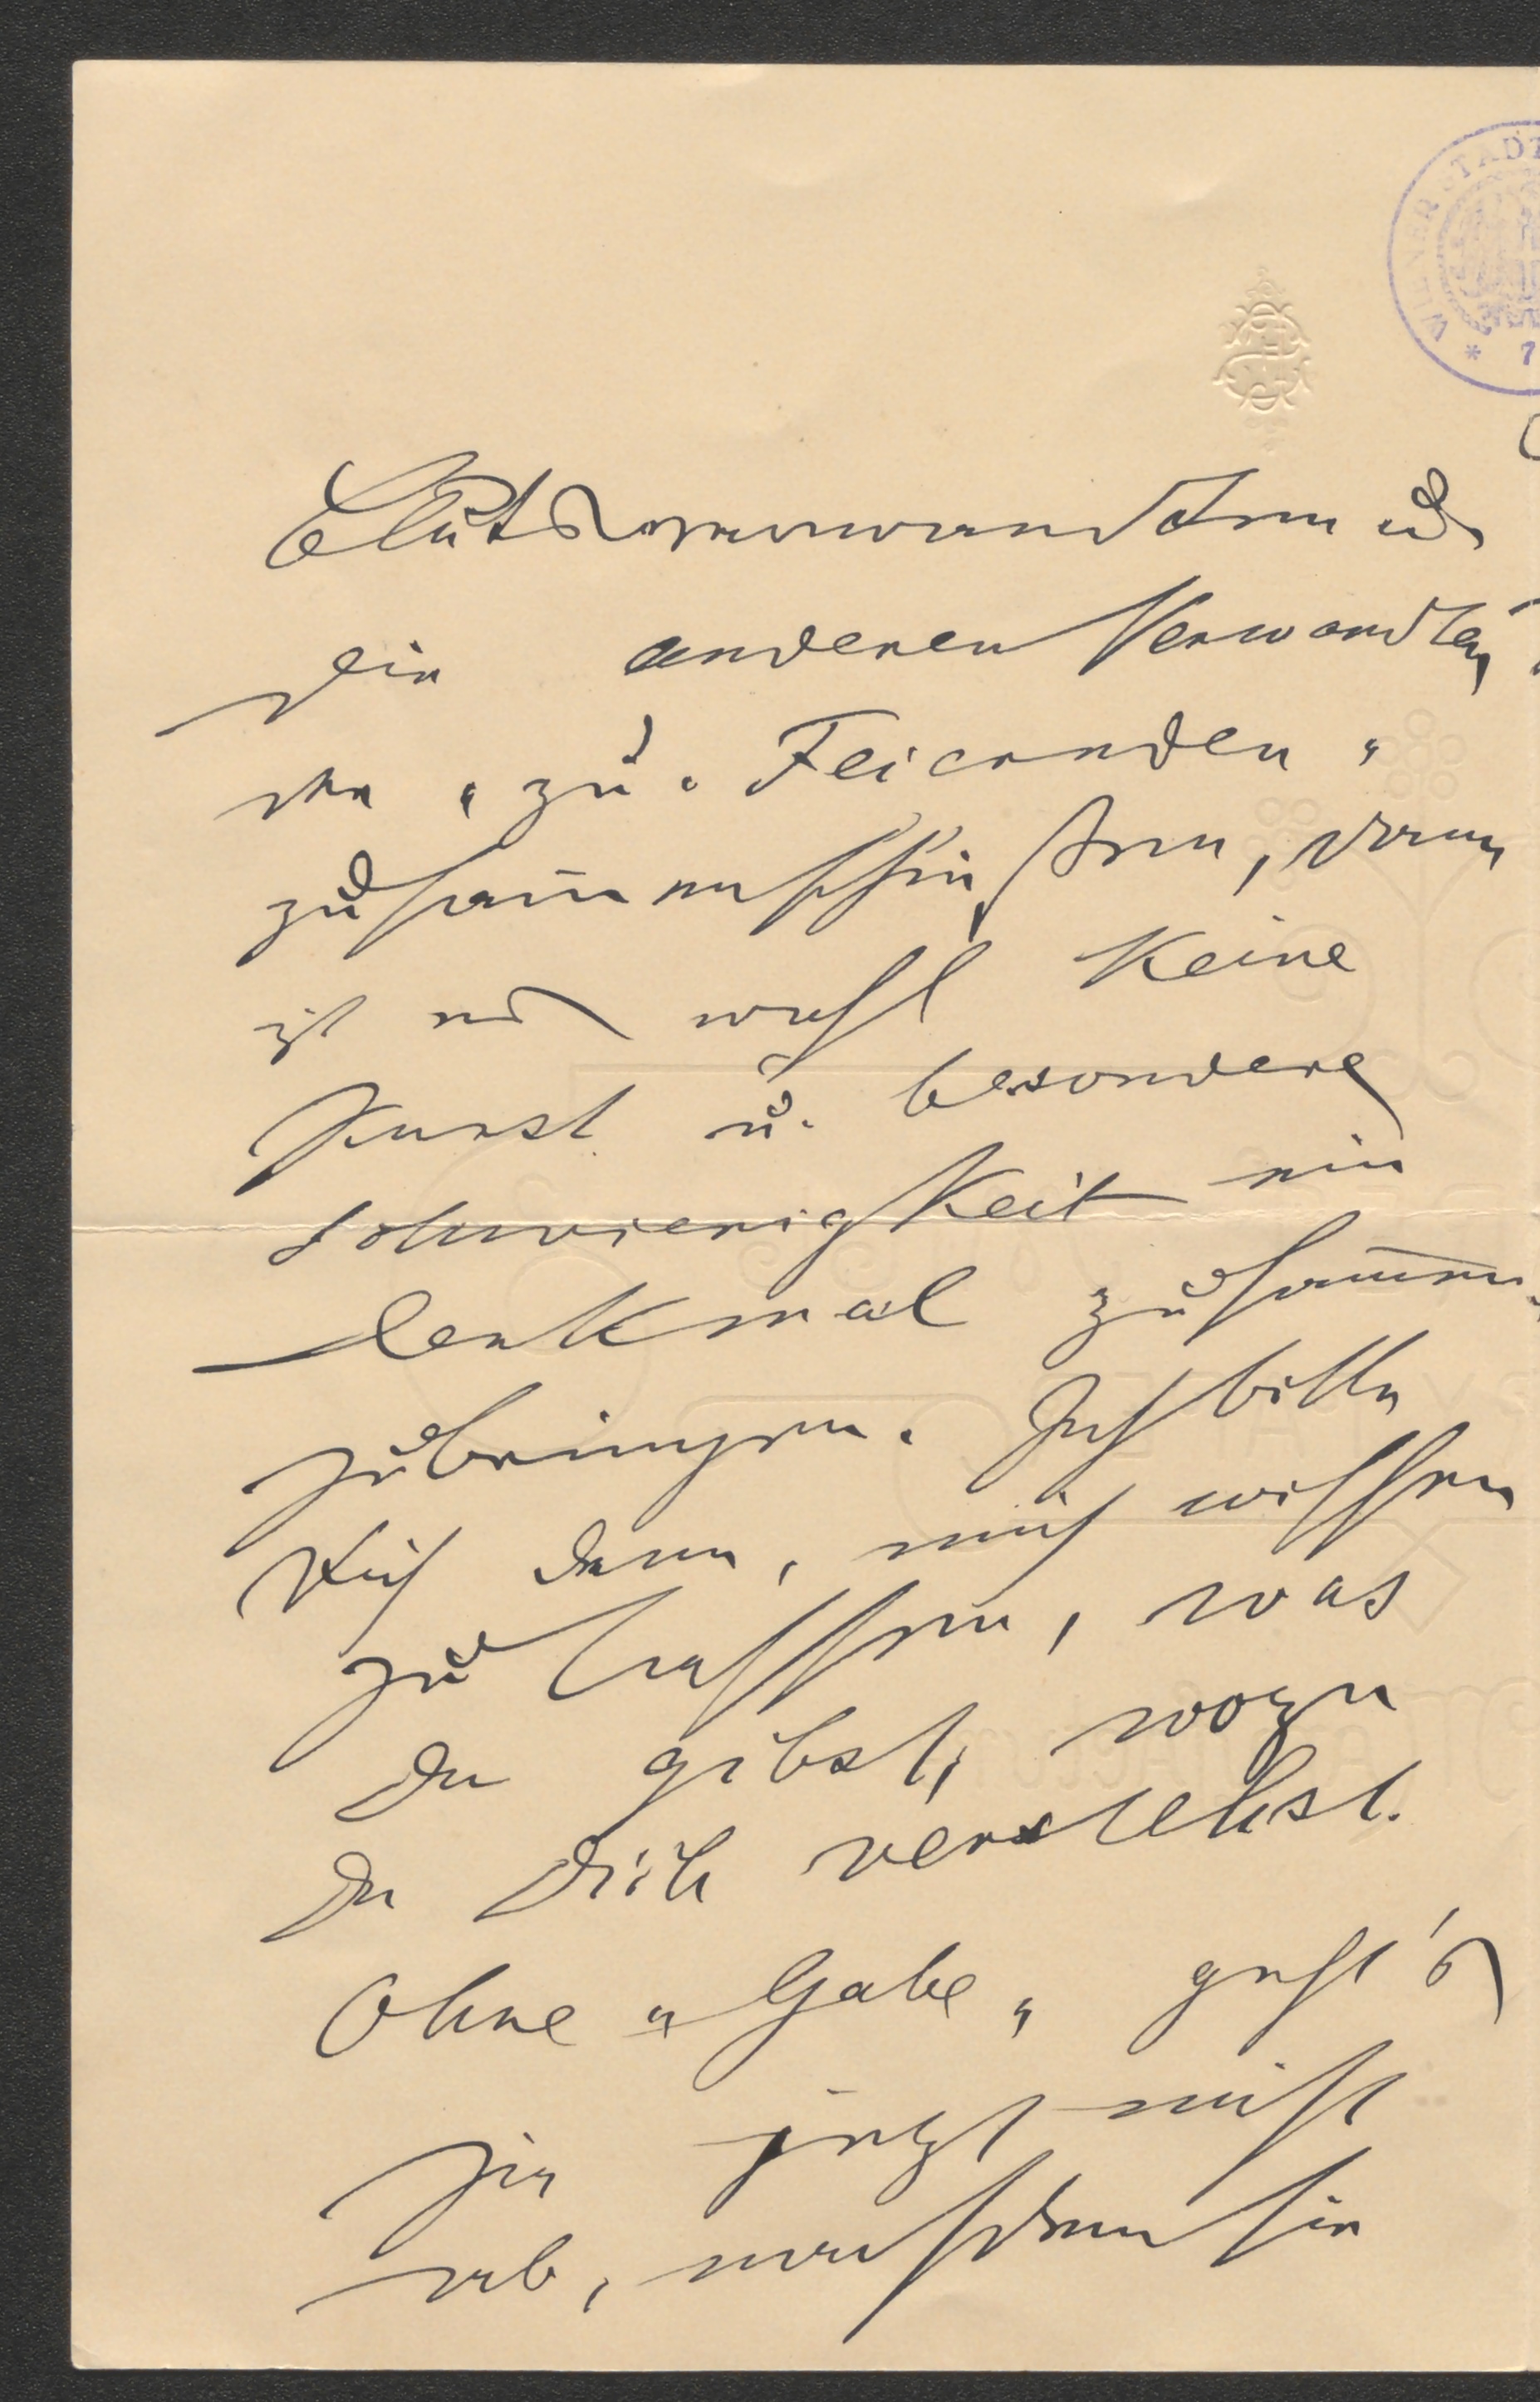 WIENER STADT
* 7
Blutsverwandten u.
die anderen Verwandten,
der „zu Feiernden"
zusammenthäten, dann
ist es wohl keine
Kunst u. besondere
Schwierigkeit ein
Denkmal zusammen-
zubringen. Ich bitte
Dich denn, mich wissen
zu lassen, was
Du gibst, wozu
Du Dich verstehst.
Ohne „Gabe„ geht's
hier jetzt nicht
ab, nachdem sie